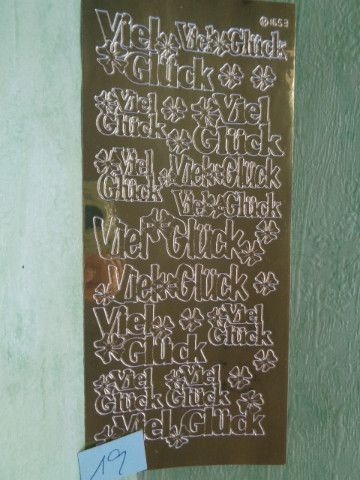 1653
Viel Viel Glück
Glück
Viel Viel
Glück Glück
Viel Viel Glück
Glück
Viel Glück
Viel Glück
Viel Glück
Viel Viel
Glück Glück
Viel Viel
Glück Glück
Viel Glück
19